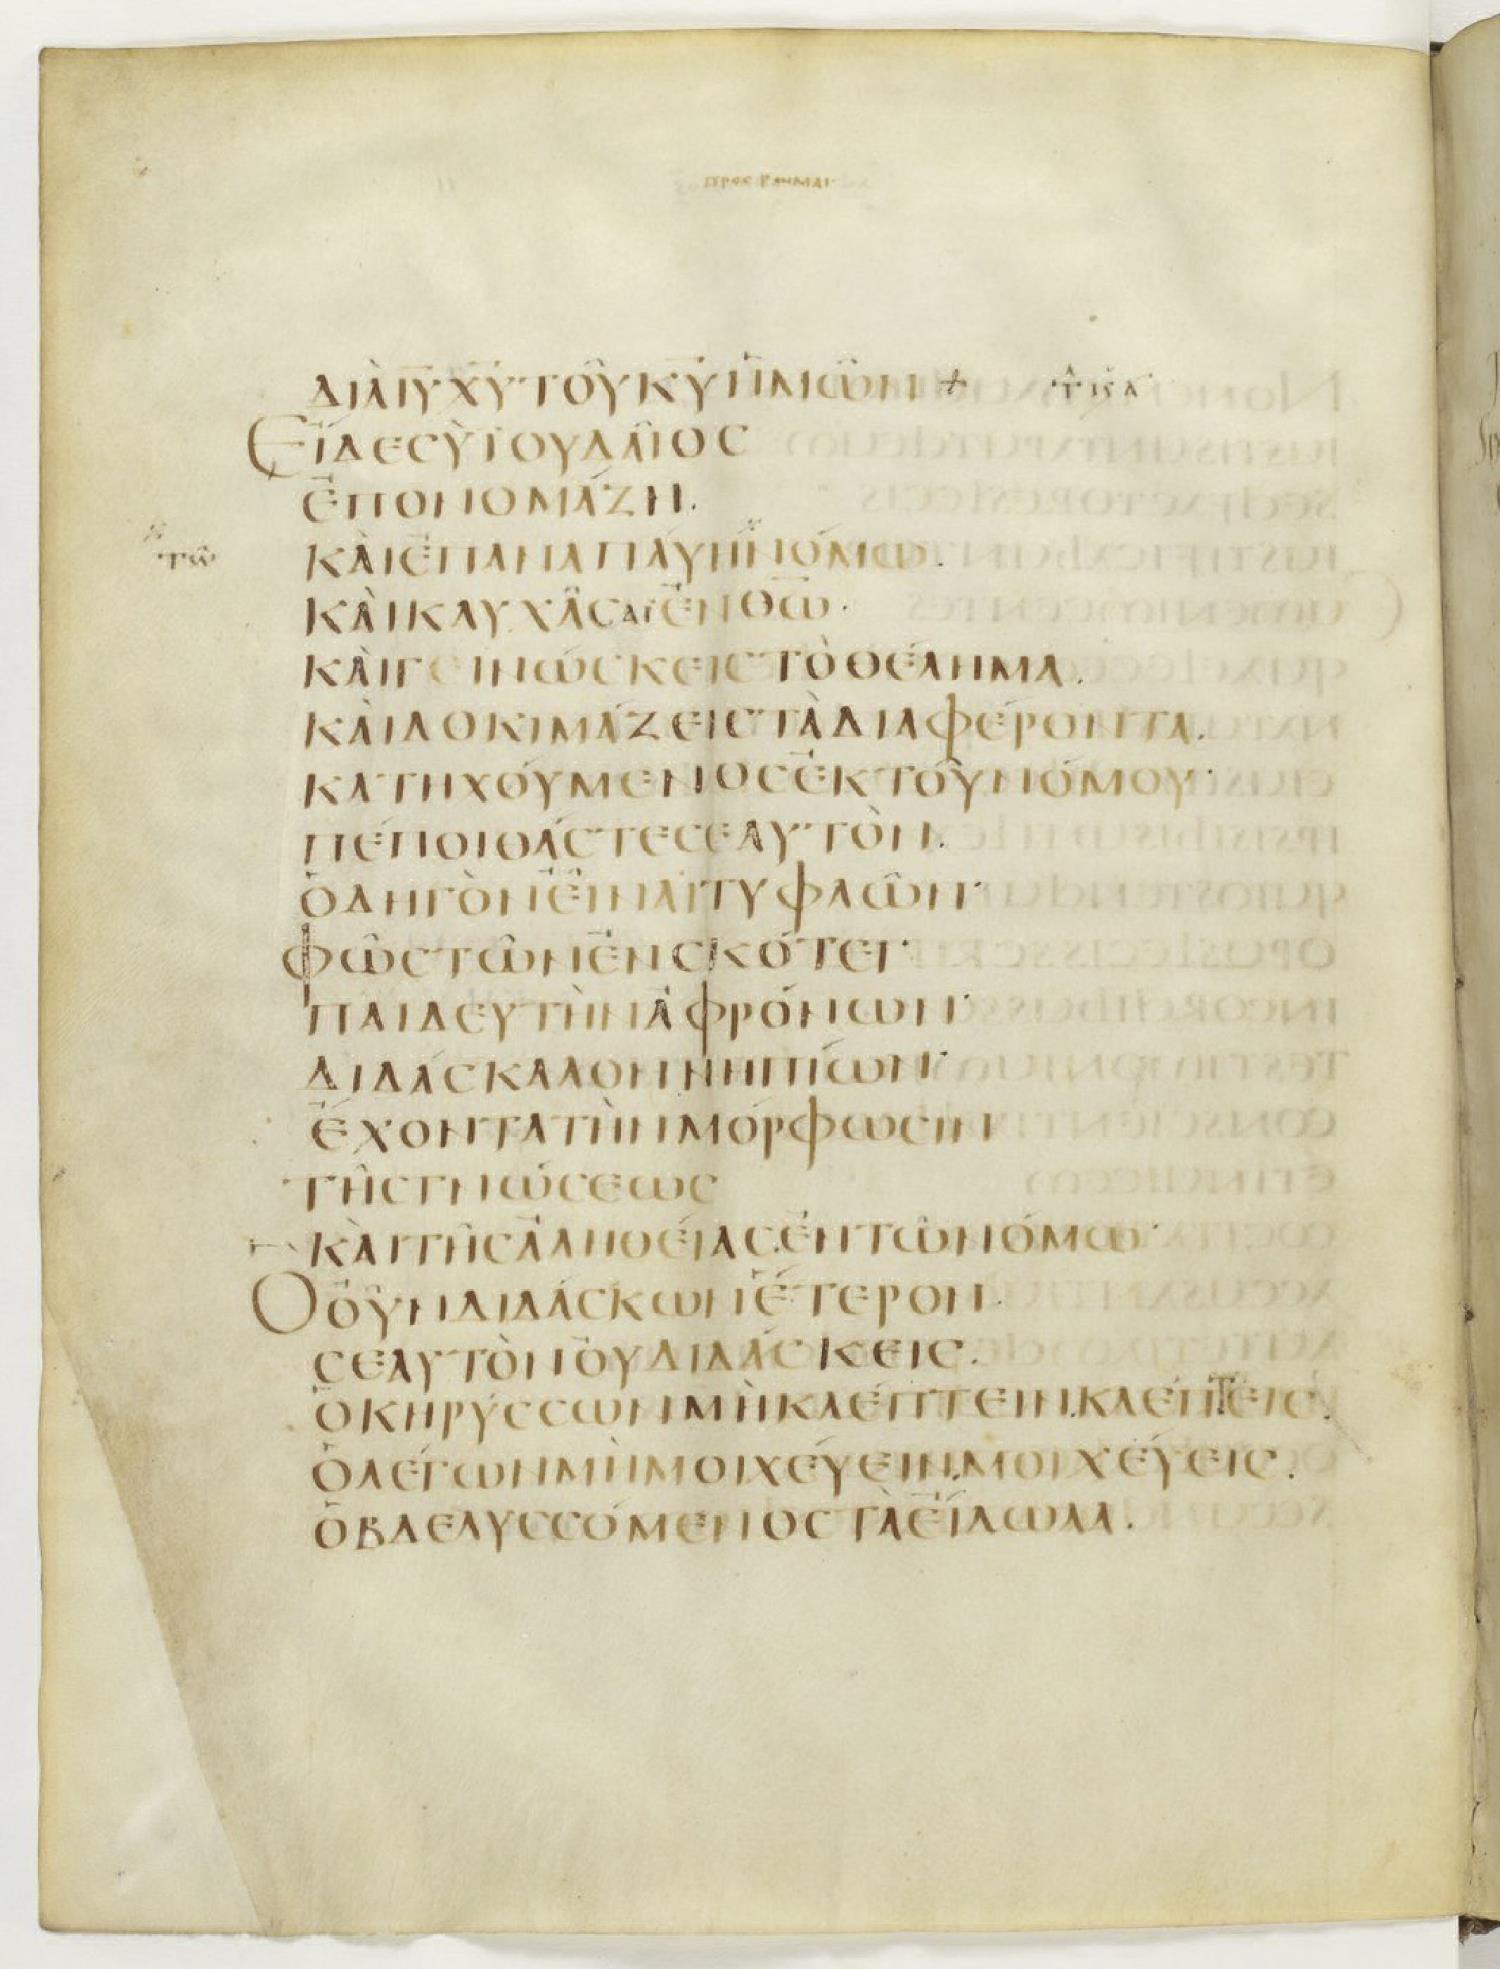 ΠΡΟΣ ΡΩΜΑΙ
ΔΙᾺ ΙΥ ΧΥ ΤΟΥ͂ ΚΥ ἩΜΩ͂Ν +
ΕἸ ΔΕ ΣῪ ΙΟΥΔΑΙ͂ΟΣ
ἘΠΟΝΟΜΆΖΗ.
ΤΩ͂
ΚΑῚ ἘΠΑΝΑΠΑΎΗ ΝΌΜΩ.
ΚΑῚ ΚΑΥΧΑ͂Σαι ἘΝ ΘΩ.
ΚΑῚ ΓΕΙΝΏΣΚΕΙΣ ΤῸ ΘΈΛΗΜΑ.
ΚΑῚ ΔΟΚΙΜΆΖΕΙΣ ΤᾺ ΔΙΑΦΈΡΟΝΤΑ.
ΚΑΤΗΧΟΎΜΕΝΟΣ ἘΚ ΤΟΥ͂ ΝΌΜΟΥ·
ΠΈΠΟΙΘΆΣ ΤΕ ΣΕΑΥΤῸΝ.
ὉΔΗΓῸΝ ΕἾΝΑΙ ΤΥΦΛΩ͂Ν·
ΦΩ͂Σ ΤΩ͂Ν ἘΝ ΣΚΌΤΕΙ·
ΠΑΙΔΕΥΤῊΝ ἈΦΡΌΝΩΝ·
ΔΙΔΆΣΚΑΛΟΝ ΝΗΠΊΩΝ·
ἜΧΟΝΤΑ ΤῊΝ ΜΌΡΦΩΣΙΝ
ΤΗ͂Σ ΓΝΏΣΕΩΣ
ΚΑῚ ΤΗ͂Σ ἈΛΗΘΕΊΑΣ ἘΝ ΤΩ͂ ΝΌΜΩ·
Ὁ ΟΥ̓͂Ν ΔΙΔΆΣΚΩΝ ἝΤΕΡΟΝ.
ΣΕΑΥΤῸΝ ΟΥ̓ ΔΙΔΆΣΚΕΙΣ.
Ὁ ΚΗΡΎΣΣΩΝ ΜῊ ΚΛΈΠΤΕΙΝ. ΚΛΈΠΤΕΙΣ.
Ὁ ΛΈΓΩΝ ΜῊ ΜΟΙΧΕΎΕΙΝ. ΜΟΙΧΕΎΕΙΣ.
Ὁ ΒΔΕΛΥΣΣΌΜΕΝΟΣ ΤᾺ ΕἼΔΩΛΑ.